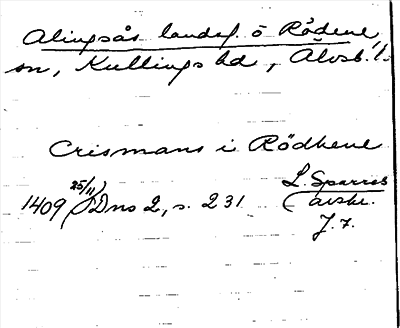 Alingsås landsf. o Rödene
sn, Kullings hd, Älvsb. l.
Crismans i Rödhene
1409 25/11 Dns 2, s. 231 L. Sparres
avskr.
J. 7.